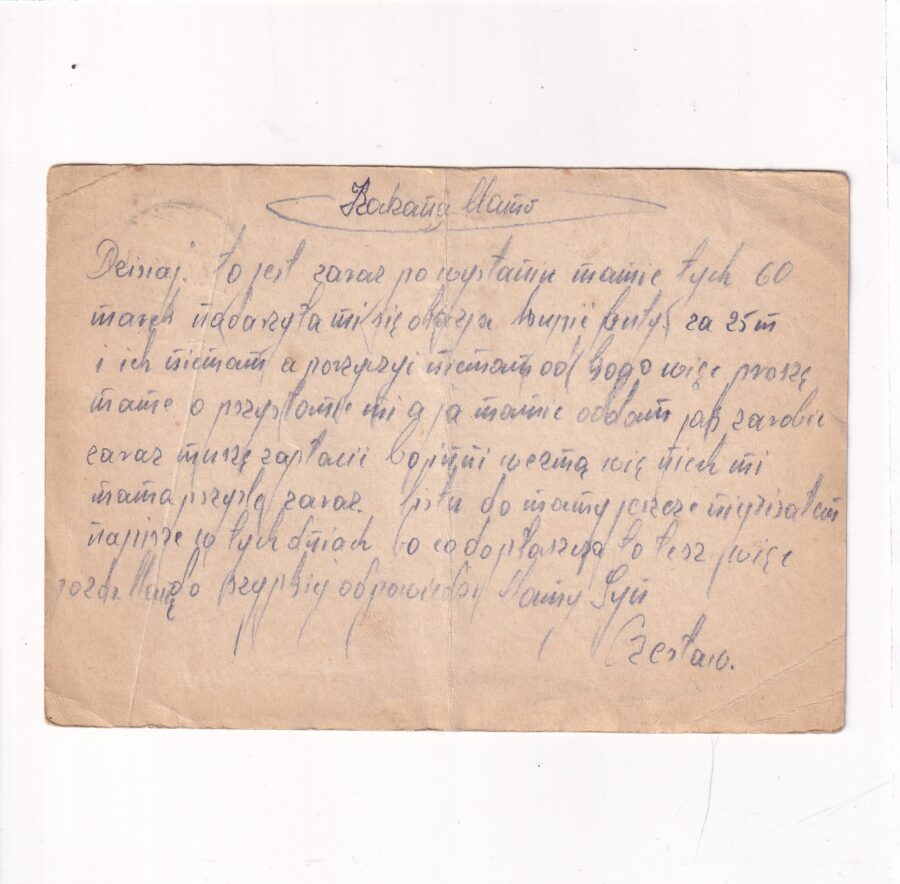 Kochana Mamo
Dzisiaj. to jest zaraz po wysłaniu mamie tych 60
marek nadarzyła mi się okazja kupić buty za 25 m
i ich niemam a porzyczyć niemam od kogo więc proszę
mame o przysłanie mi a ja mamie oddam jak zarobie
zaraz muszę zapłacić bo inni wezmą więc niech mi
mama przyslę zaraz. listu do mamy jeszcze niepisałem
napisze w tych dniach bo to tesz więc
do szypkiej odpowiedzi Mamy Syn
Czesław.